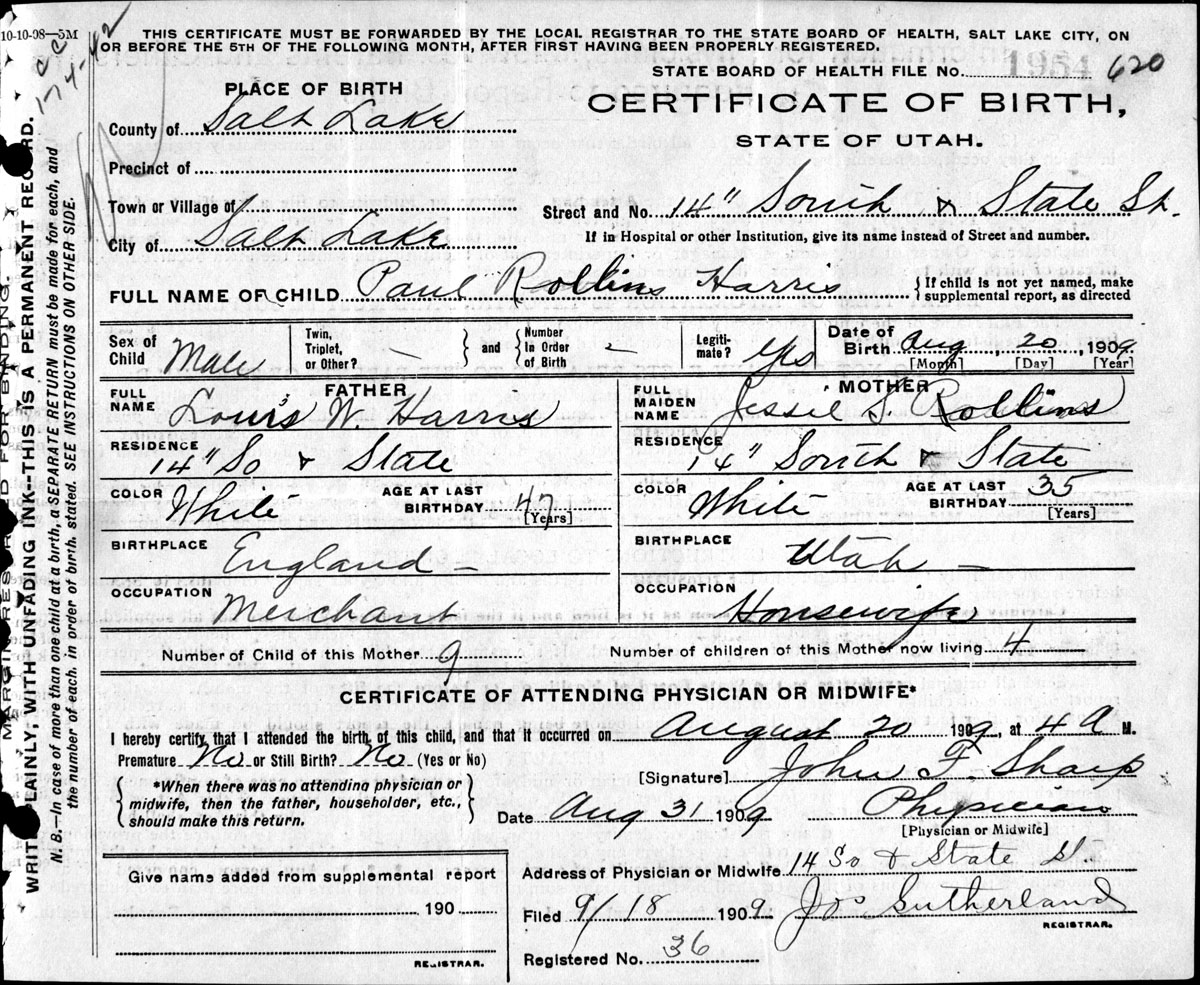 10-10-98—5M
174-42
THIS CERTIFICATE MUST BE FORWARDED BY THE LOCAL REGISTRAR TO THE STATE BOARD OF HEALTH, SALT LAKE CITY, ON
OR BEFORE THE 5TH OF THE FOLLOWING MONTH, AFTER FIRST HAVING BEEN PROPERLY REGISTERED.
STATE BOARD OF HEALTH FILE No. 1954 620
PLACE OF BIRTH
CERTIFICATE OF BIRTH,
STATE OF UTAH.
County of Salt Lake
Precinct of
Town or Village of
Street and No. 14" South & State St.
City of Salt Lake
If in Hospital or other Institution, give its name instead of Street and number.
FULL NAME OF CHILD Paul Rollins Harris
If child is not yet named, make
supplemental report, as directed
Sex of Child Male
Twin, Triplet, or Other? –
and
Number In Order of Birth –
Legitimate? Yes
Date of Birth Aug, 20, 1909
[Month] [Day] [Year]
FATHER
FULL NAME Louis W. Harris
MOTHER
FULL MAIDEN NAME Jessie S. Rollins
RESIDENCE 14" So & State
RESIDENCE 14" South & State
COLOR White
AGE AT LAST BIRTHDAY 47 [Years]
COLOR White
AGE AT LAST BIRTHDAY 35 [Years]
BIRTHPLACE England –
BIRTHPLACE Utah –
OCCUPATION Merchant
OCCUPATION Housewife
Number of Child of this Mother 9
Number of children of this Mother now living 4
CERTIFICATE OF ATTENDING PHYSICIAN OR MIDWIFE*
I hereby certify that I attended the birth of this child, and that it occurred on August 20 1909, at 4 A M.
Premature No or Still Birth? No (Yes or No)
[Signature] John F. Sharp
*When there was no attending physician or
midwife, then the father, householder, etc.,
should make this return.
Date Aug 31 1909 Physician
[Physician or Midwife]
Give name added from supplemental report
190
REGISTRAR.
Address of Physician or Midwife 14 So & State St.
Filed 9/18 1909 Jos Sutherland
REGISTRAR.
Registered No. 36
MARGIN RESERVED FOR BINDING.
WRITE PLAINLY, WITH UNFADING INK--THIS IS A PERMANENT RECORD.
N. B.—In case of more than one child at a birth, a SEPARATE RETURN must be made for each, and
the number of each, in order of birth, stated. SEE INSTRUCTIONS ON OTHER SIDE.